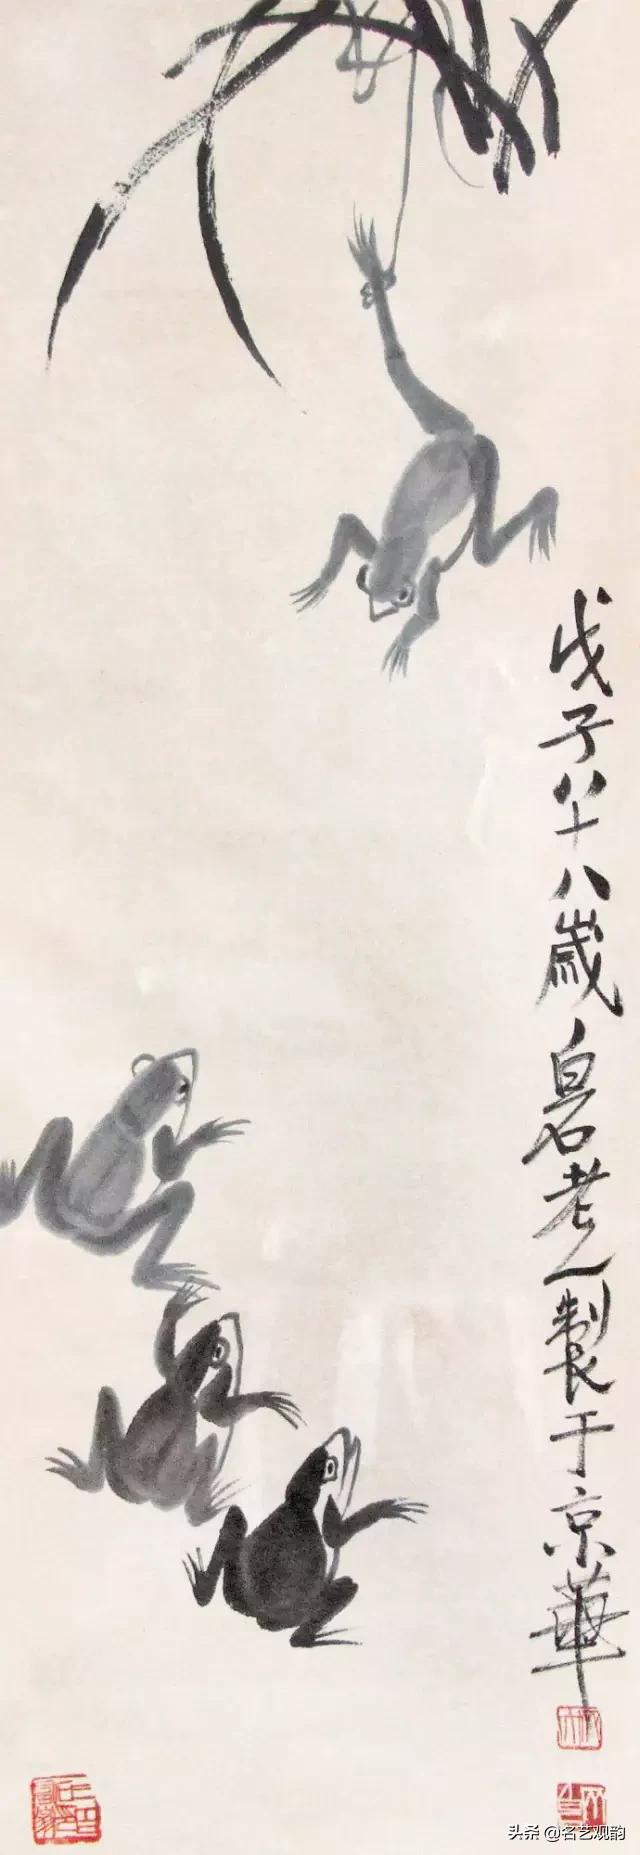 戊子八十八歲白石老人製于京華
头条 @名艺观韵